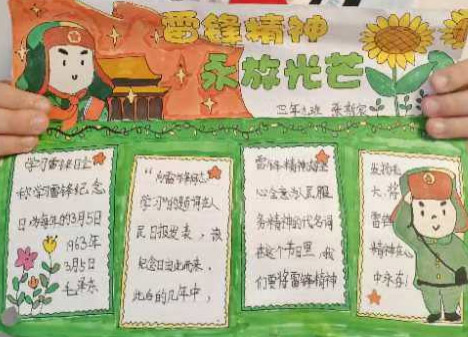 雷锋精神
永放光芒
三年 班
学习雷锋日全
称学雷锋纪念
日为每年的3月5日
1963年
3月5日
毛泽东
"向雷锋同志
学习"的题词在人
民日报发表，该
纪念日由此而来，
此后的几年中，
雷锋精神
心全意为人民服
务精神的代名词
在这个节日里，我
们要将雷锋精神
发扬光
大将
雷锋
精神在心
中永存！